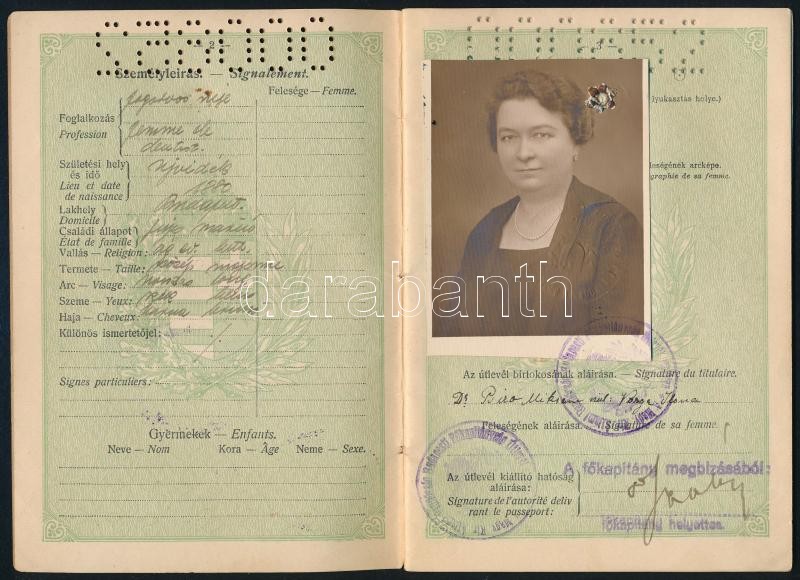 — 2 —
Személyleírás. — Signalement.
Felesége — Femme.
Foglalkozás
Profession
fogorvos neje
femme de
dentist.
Születési hely
és idő
Lieu et date
de naissance
Ujvidék
1880
Lakhely
Domicile
Budapest.
Családi állapot
État de famille
Vallás — Religion: ág. ev. luth.
Termete — Taille: közép moyenne
Arc — Visage:
Szeme — Yeux: kék bleus
Haja — Cheveux: barna bruns
Különös ismertetőjel:
Signes particuliers:
Gyermekek — Enfants.
Neve — Nom Kora — Âge Neme — Sexe.
— 3 —
lyukasztás helye.)
leségének arcképe.
graphie de sa femme.
darabanth
Az útlevél birtokosának aláírása. — Signature du titulaire.
Dr Biró Miksáné szül: Ilona
Feleségének aláírása. — Signature de sa femme
A főkapitány megbizásából:
Az útlevél kiállító hatóság
aláírása:
Signature de l'autorité deliv
rant le passeport:
főkapitány helyettes.